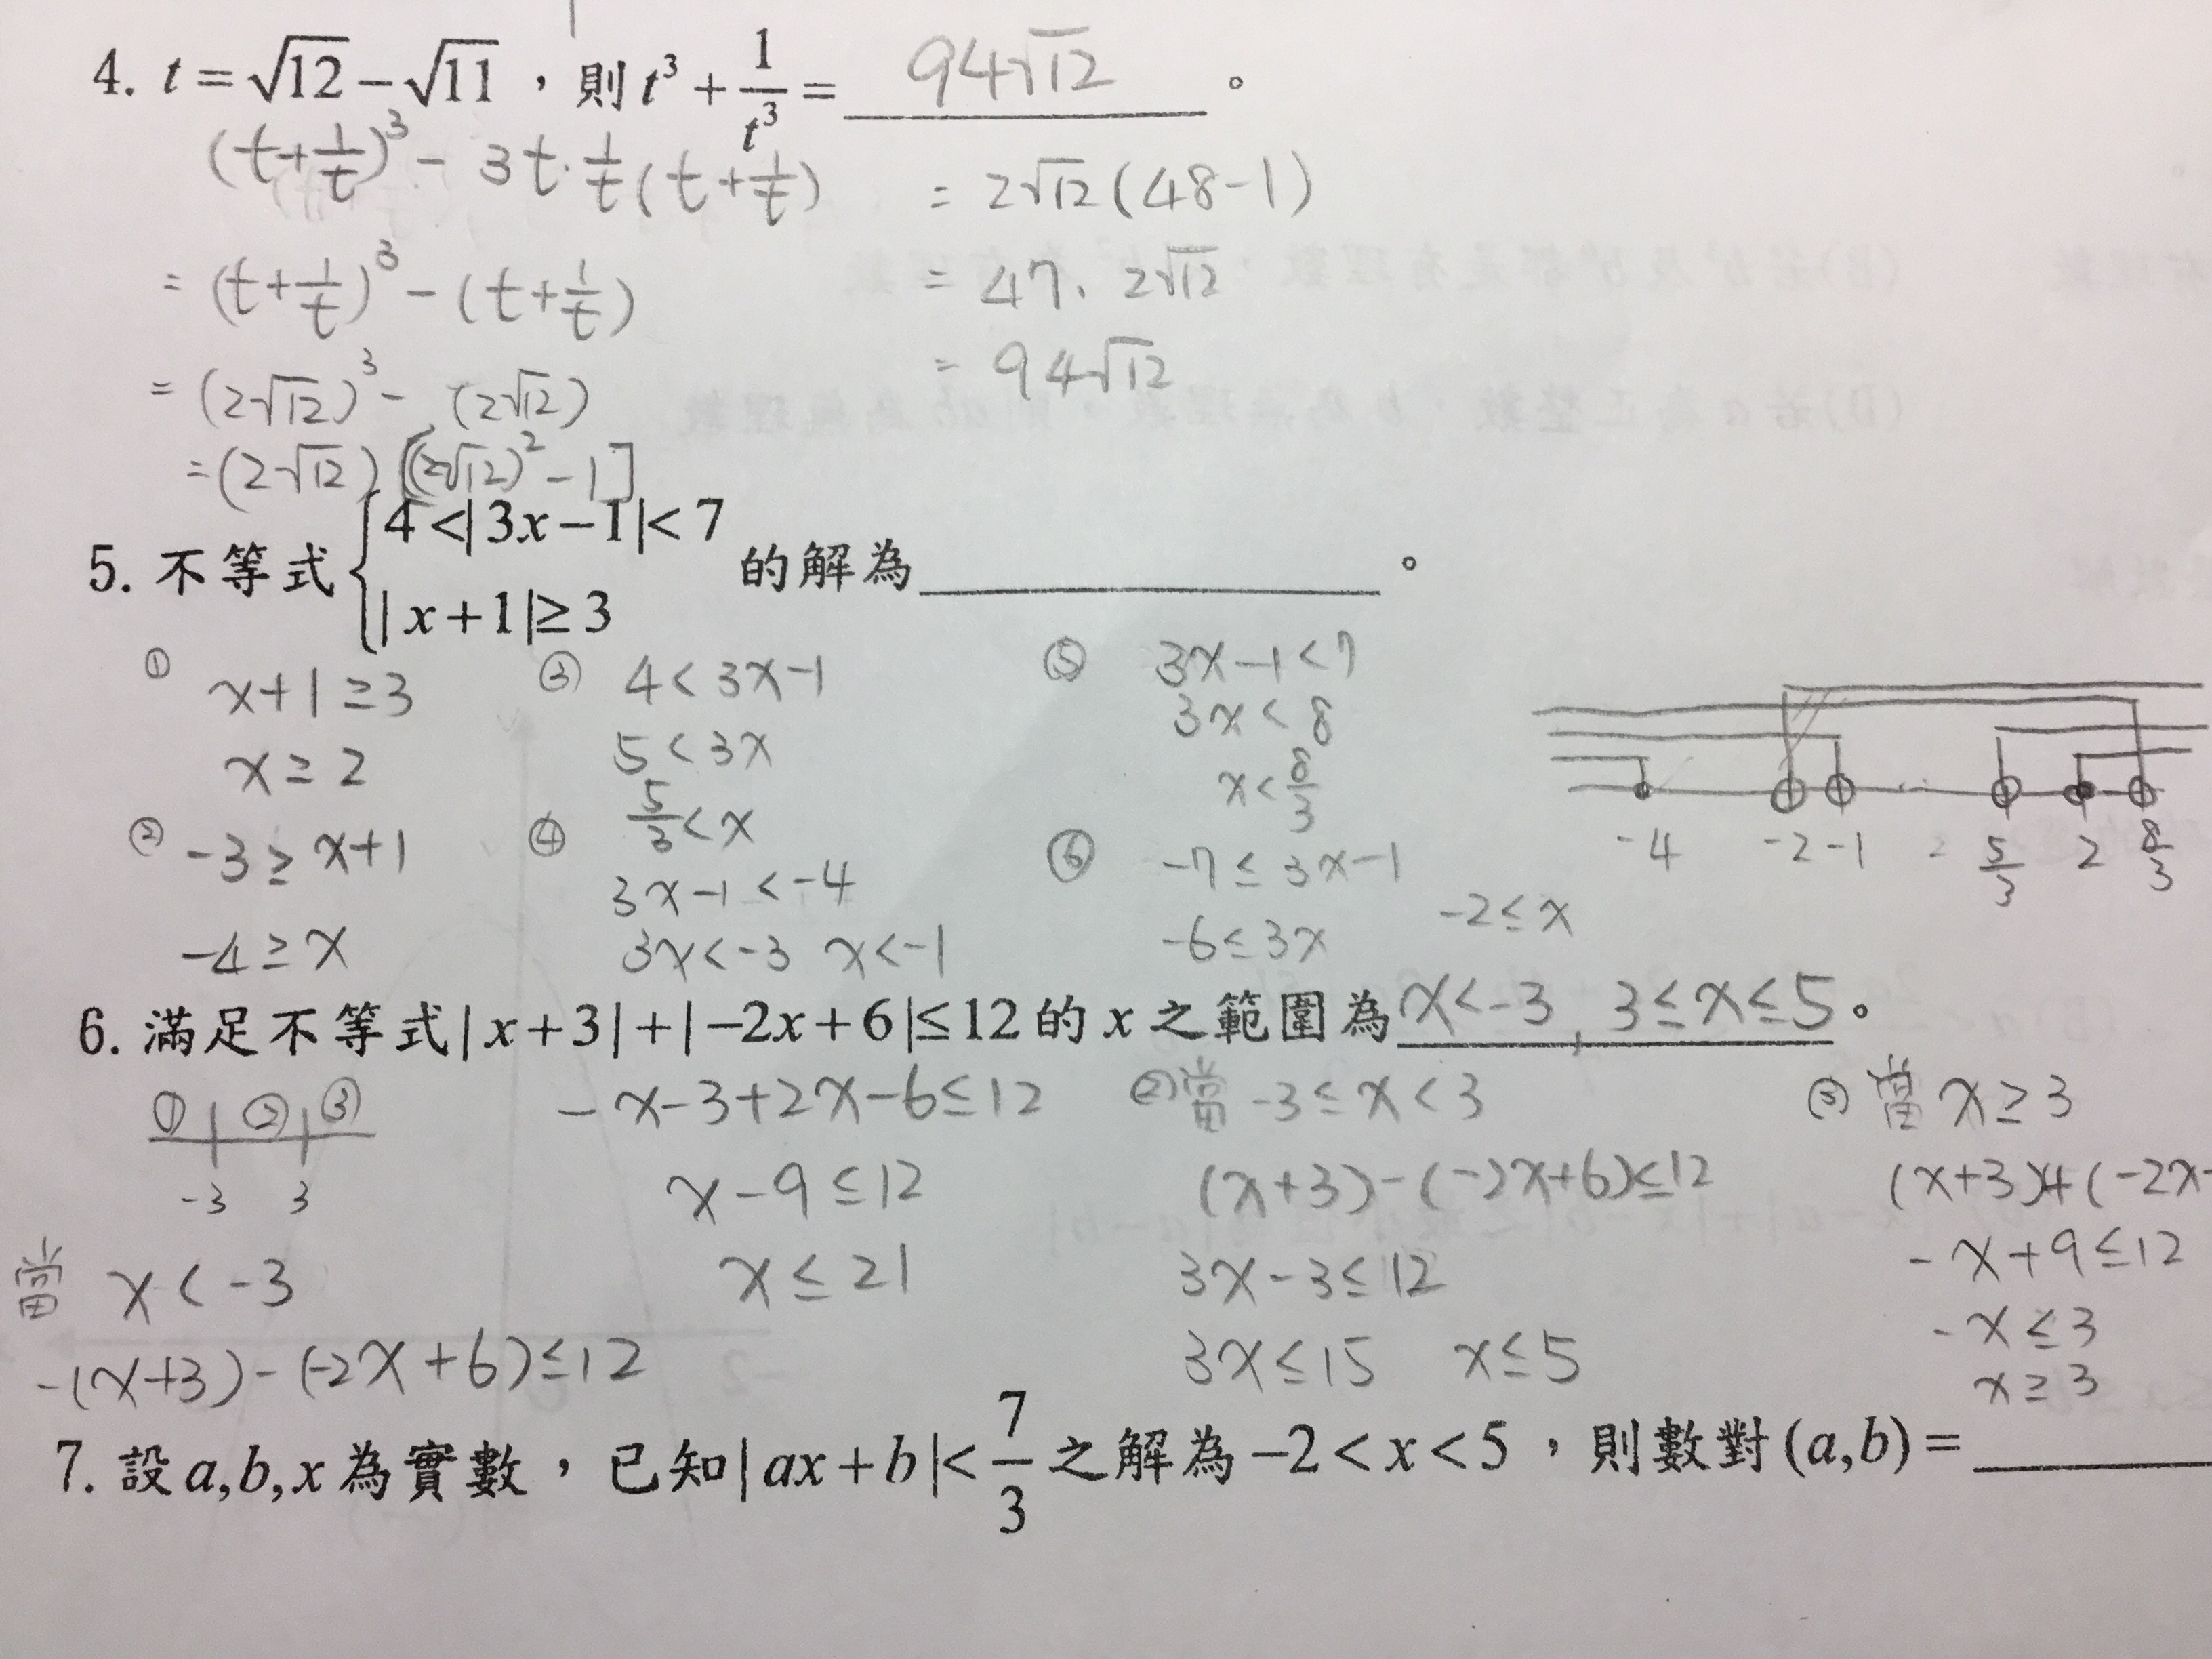 4. t = √12 − √11 ，則 t³ + 1/t³ = 94√12 。
(t+1/t)³ − 3t·1/t(t+1/t)
= (t+1/t)³ − (t+1/t)
= (2√12)³ − (2√12)
= (2√12)[(2√12)² − 1]
= 2√12(48−1)
= 47．2√12
= 94√12
5. 不等式 { 4<|3x−1|<7
|x+1|≥3 的解為 。
① x+1≥3
x≥2
② −3≥x+1
−4≥x
③ 4<3x−1
5<3x
5/3<x
④ 3x−1<−4
3x<−3 x<−1
⑤ 3x−1<7
3x<8
x<8/3
⑥ −7≤3x−1
−6≤3x −2≤x
−4 −2 −1 5/3 2 8/3
6. 滿足不等式|x+3|+|−2x+6|≤12的x之範圍為 x<−3, 3≤x≤5 。
① ② ③
−3 3
當 x<−3
−(x+3)−(−2x+6)≤12
−x−3+2x−6≤12
x−9≤12
x≤21
②當 −3≤x<3
(x+3)−(−2x+6)≤12
3x−3≤12
3x≤15 x≤5
③ 當 x≥3
(x+3)+(−2x
−x+9≤12
−x≤3
x≥3
7. 設a,b,x為實數，已知|ax+b|<7/3之解為−2<x<5，則數對(a,b)=